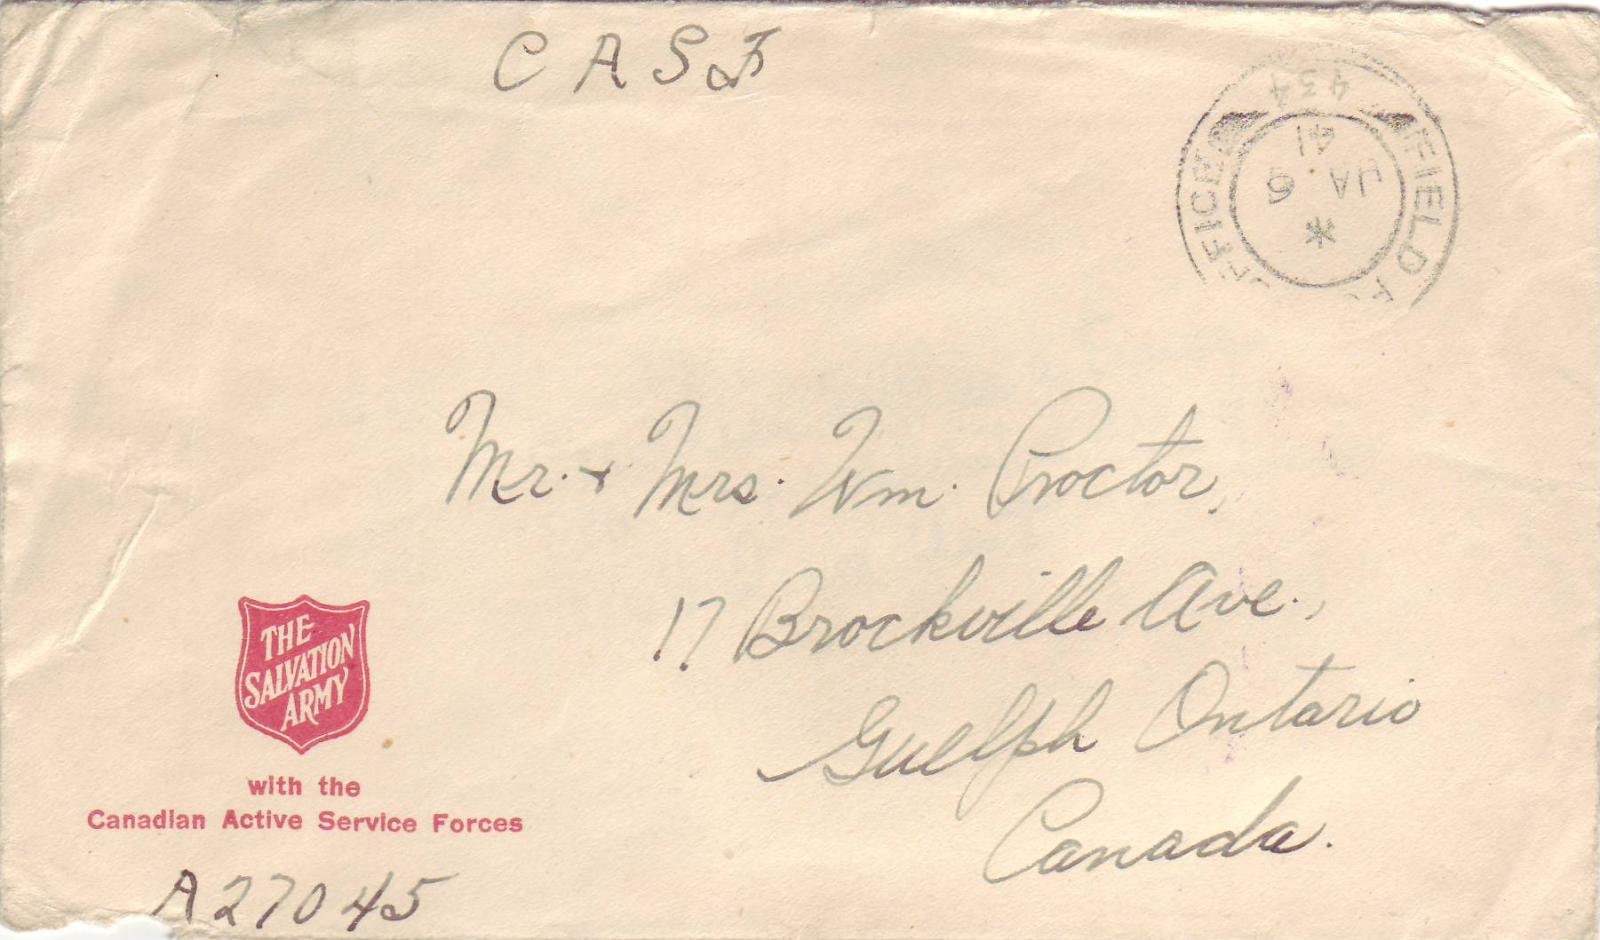 C A S F
FIELD POST OFFICE
434
JA 6
41
*
Mr. + Mrs. Wm. Proctor,
17 Brockville Ave.,
Guelph Ontario
Canada.
THE
SALVATION
ARMY
with the
Canadian Active Service Forces
A27045